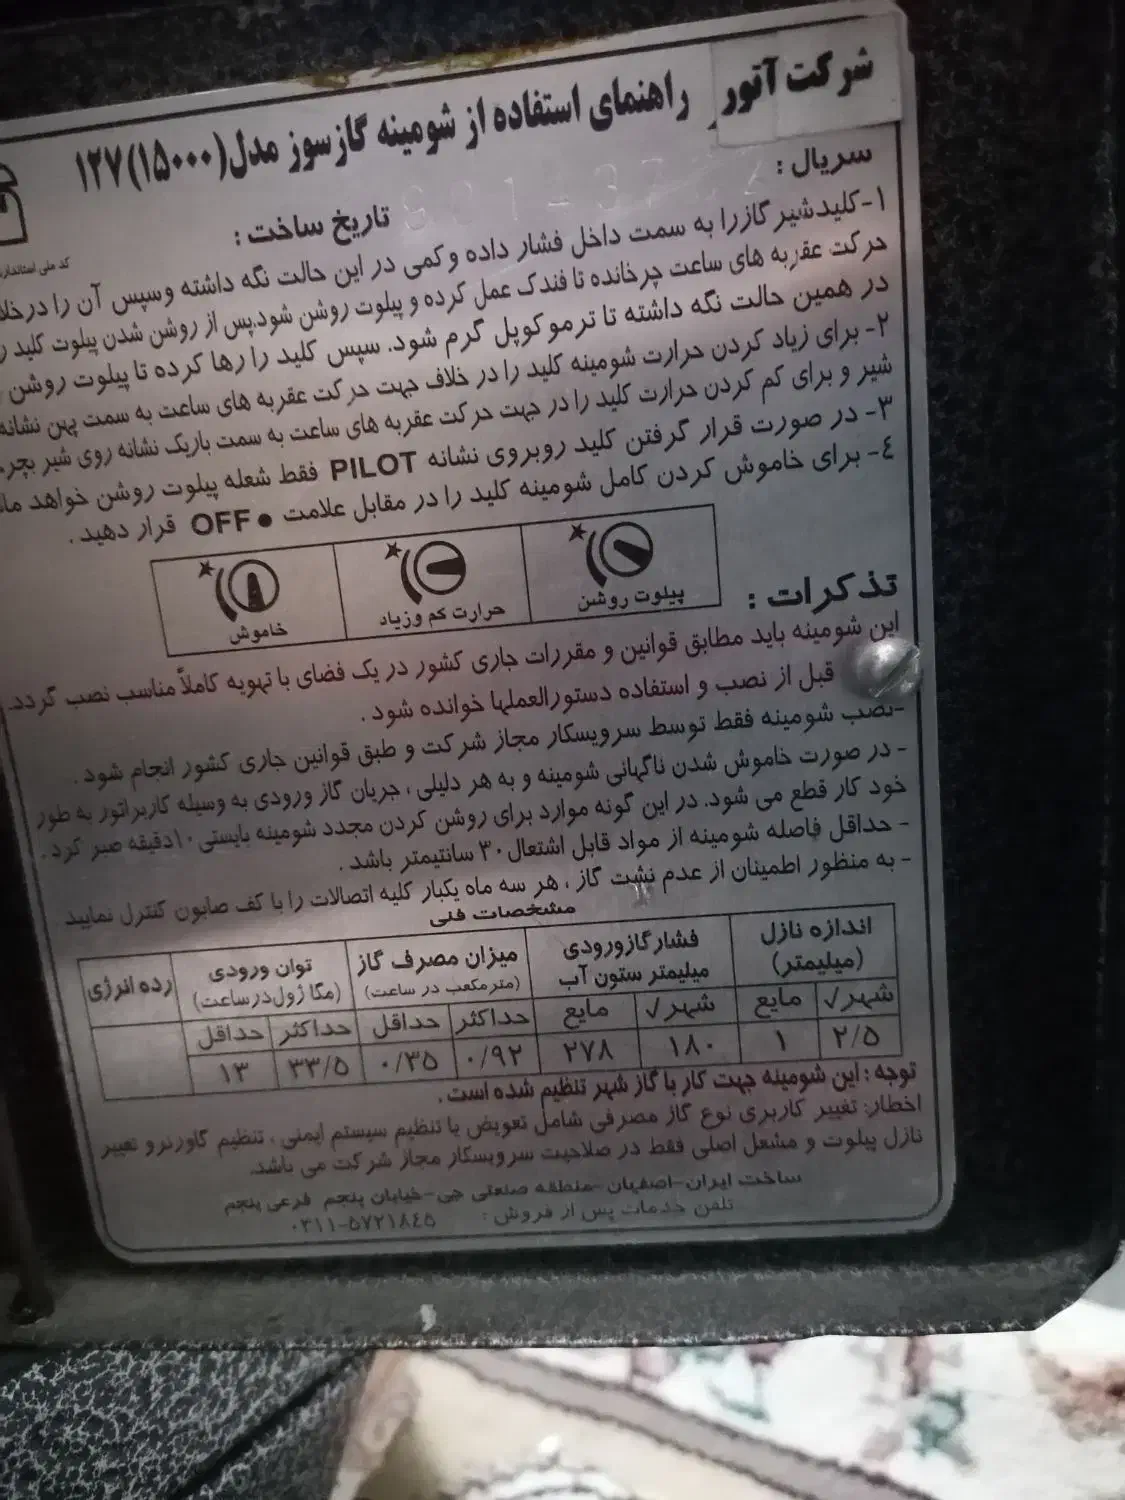 شرکت آتور راهنمای استفاده از شومینه گازسوز مدل(۱۵۰۰۰)۱۲۷
سریال :
تاریخ ساخت :
کد ملی استاندارد
۱-کلیدشیر گازرا به سمت داخل فشار داده وکمی در این حالت نگه داشته وسپس آن را درخلا
حرکت عقربه های ساعت چرخانده تا فندک عمل کرده و پیلوت روشن شود.پس از روشن شدن پیلوت کلید ر
در همین حالت نگه داشته تا ترموکوپل گرم شود. سپس کلید را رها کرده تا پیلوت روشن
۲-برای زیاد کردن حرارت شومینه کلید را در خلاف جهت حرکت عقربه های ساعت به سمت پهن نشانه
شیر و برای کم کردن حرارت کلید را در جهت حرکت عقربه های ساعت به سمت باریک نشانه روی شیر بچر
۳- در صورت قرار گرفتن کلید روبروی نشانه PILOT فقط شعله پیلوت روشن خواهد ما
٤- برای خاموش کردن کامل شومینه کلید را در مقابل علامت ●OFF قرار دهید .
پیلوت روشن حرارت کم وزیاد خاموش
تذکرات :
این شومینه باید مطابق قوانین و مقررات جاری کشور در یک فضای با تهویه کاملاً مناسب نصب گردد.
قبل از نصب و استفاده دستورالعملها خوانده شود .
-نصب شومینه فقط توسط سرویسکار مجاز شرکت و طبق قوانین جاری کشور انجام شود .
- در صورت خاموش شدن ناگهانی شومینه و به هر دلیلی ، جریان گاز ورودی به وسیله کاربراتور به طور
خود کار قطع می شود. در این گونه موارد برای روشن کردن مجدد شومینه بایستی ۱۰دقیقه صبر کرد .
- حداقل فاصله شومینه از مواد قابل اشتعال ۳۰ سانتیمتر باشد .
- به منظور اطمینان از عدم نشت گاز ، هر سه ماه یکبار کلیه اتصالات را با کف صابون کنترل نمایید
مشخصات فنی
اندازه نازل فشارگازورودی میزان مصرف گاز توان ورودی رده انرژی
(میلیمتر) میلیمتر ستون آب (مترمکعب در ساعت) (مگا ژول درساعت)
شهر√ مایع شهر√ مایع حداکثر حداقل حداکثر حداقل
۲/۵ ۱ ۱۸۰ ۲۷۸ ۰/۹۲ ۰/۳۵ ۳۳/۵ ۱۳
توجه : این شومینه جهت کار با گاز شهر تنظیم شده است .
اخطار: تغییر کاربری نوع گاز مصرفی شامل تعویض یا تنظیم سیستم ایمنی ، تنظیم گاورنر و تعییر
نازل پیلوت و مشعل اصلی فقط در صلاحیت سرویسکار مجاز شرکت می باشد.
ساخت ایران-اصفهان -منطقه صنعتی جی-خیابان پنجم فرعی پنجم
تلفن خدمات پس از فروش : ۰۳۱۱-۵۷۲۱۸٤۵